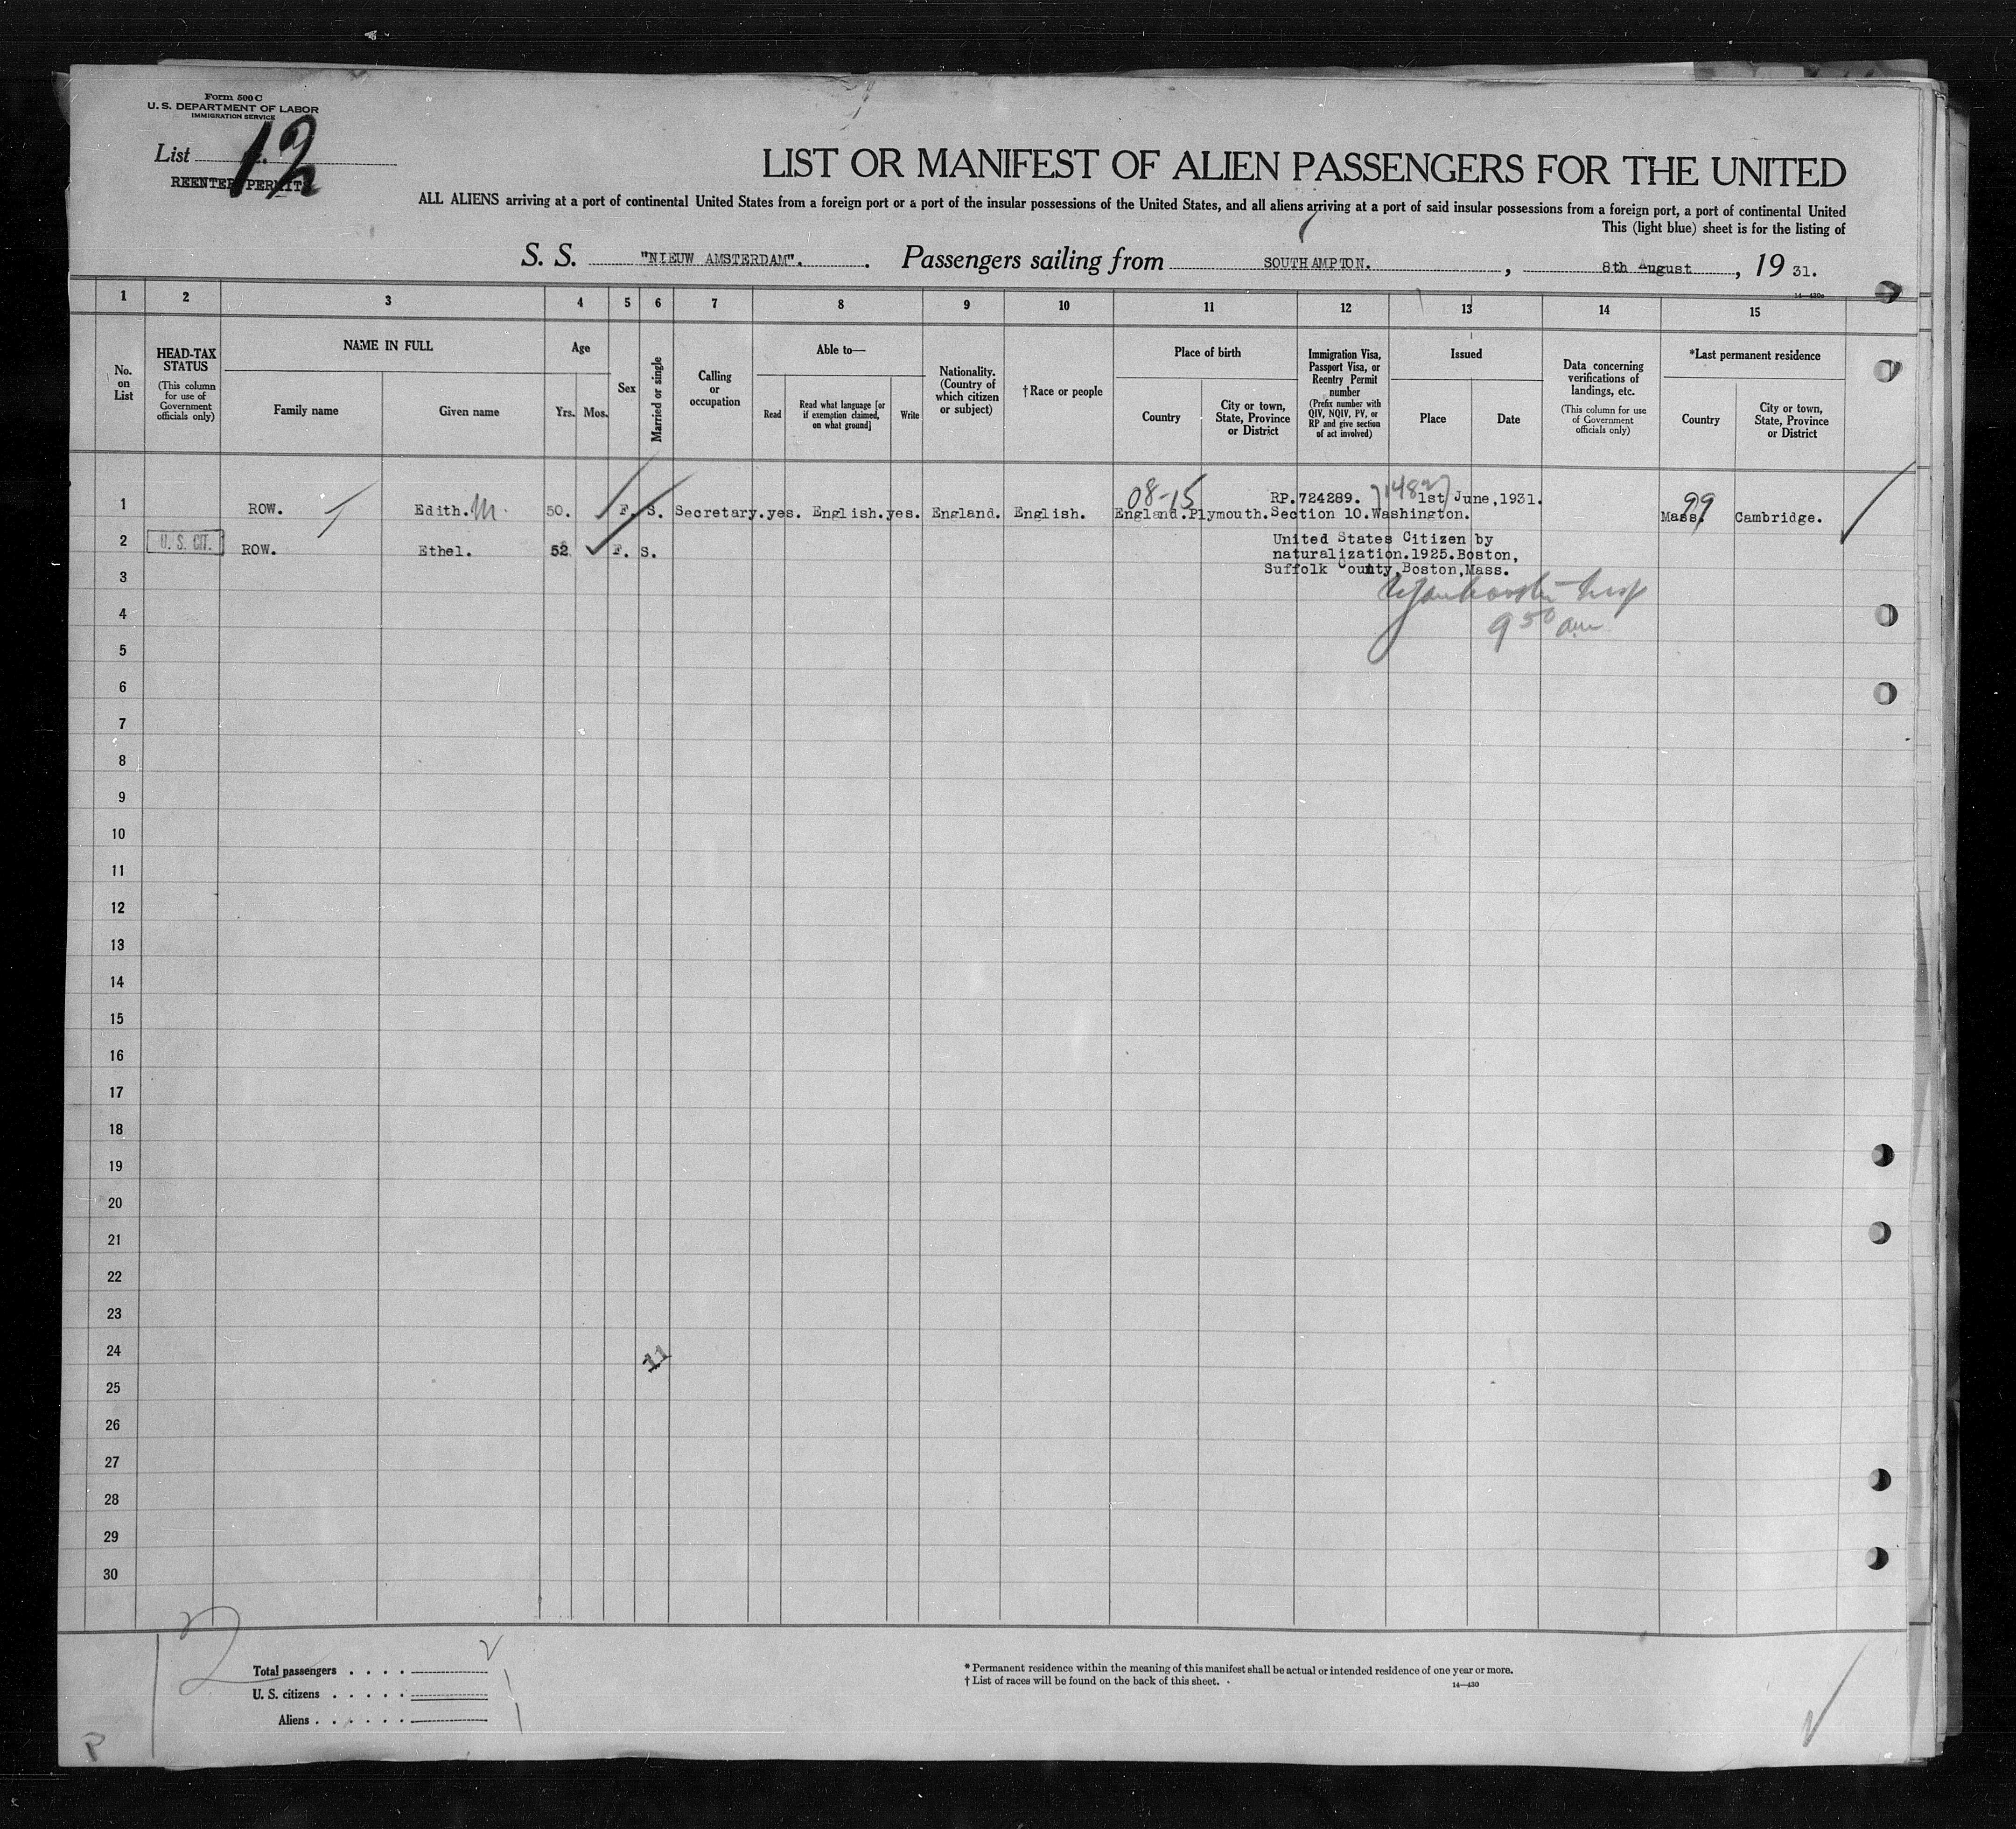 Form 500 C
U. S. DEPARTMENT OF LABOR
IMMIGRATION SERVICE
List 12
REENTRY PERMITS
LIST OR MANIFEST OF ALIEN PASSENGERS FOR THE UNITED
ALL ALIENS arriving at a port of continental United States from a foreign port or a port of the insular possessions of the United States, and all aliens arriving at a port of said insular possessions from a foreign port, a port of continental United
This (light blue) sheet is for the listing of
S. S. "NIEUW AMSTERDAM". Passengers sailing from SOUTHAMPTON. , 8th August , 19 31.
1 2 3 4 5 6 7 8 9 10 11 12 13 14 15
No. on List
HEAD-TAX STATUS
(This column for use of Government officials only)
NAME IN FULL
Family name
Given name
Age
Yrs. Mos.
Sex
Married or single
Calling or occupation
Able to—
Read
Read what language [or if exemption claimed, on what ground]
Write
Nationality. (Country of which citizen or subject)
† Race or people
Place of birth
Country
City or town, State, Province or District
Immigration Visa, Passport Visa, or Reentry Permit number
(Prefix number with QIV, NQIV, PV, or RP and give section of act involved)
Issued
Place
Date
Data concerning verifications of landings, etc.
(This column for use of Government officials only)
*Last permanent residence
Country
City or town, State, Province or District
08-15 RP.724289. 1st June,1931. 99
1 ROW. Edith. M. 50. F. S. Secretary. yes. English. yes. England. English. England. Plymouth. Section 10. Washington. Mass. Cambridge.
2 U. S. CIT. ROW. Ethel. 52 F. S. United States Citizen by
naturalization.1925.Boston,
3 Suffolk County,Boston,Mass.
4 9 50 am
5
6
7
8
9
10
11
12
13
14
15
16
17
18
19
20
21
22
23
24 11
25
26
27
28
29
30
2
Total passengers . . . .
U. S. citizens . . . . .
Aliens . . . . . .
* Permanent residence within the meaning of this manifest shall be actual or intended residence of one year or more.
† List of races will be found on the back of this sheet.
14—430
P